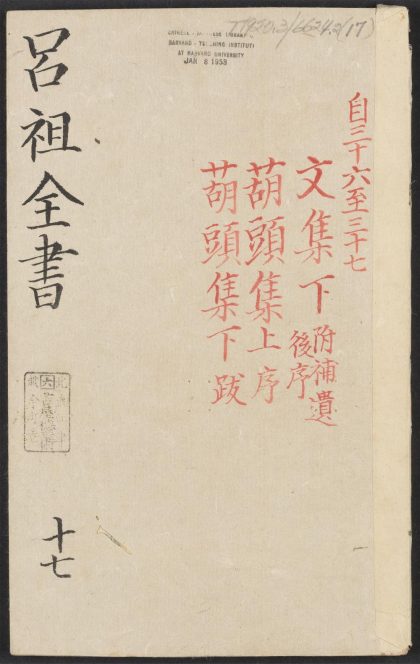 TT1920.3/6624.2(17)
CHINESE - JAPANESE LIBRARY
HARVARD - YENCHING INSTITUTE
AT HARVARD UNIVERSITY
JAN 8 1953
自三十六至三十七
文集下 附補遺 後序
葫頭集上序
葫頭集下跋
呂祖全書
十七